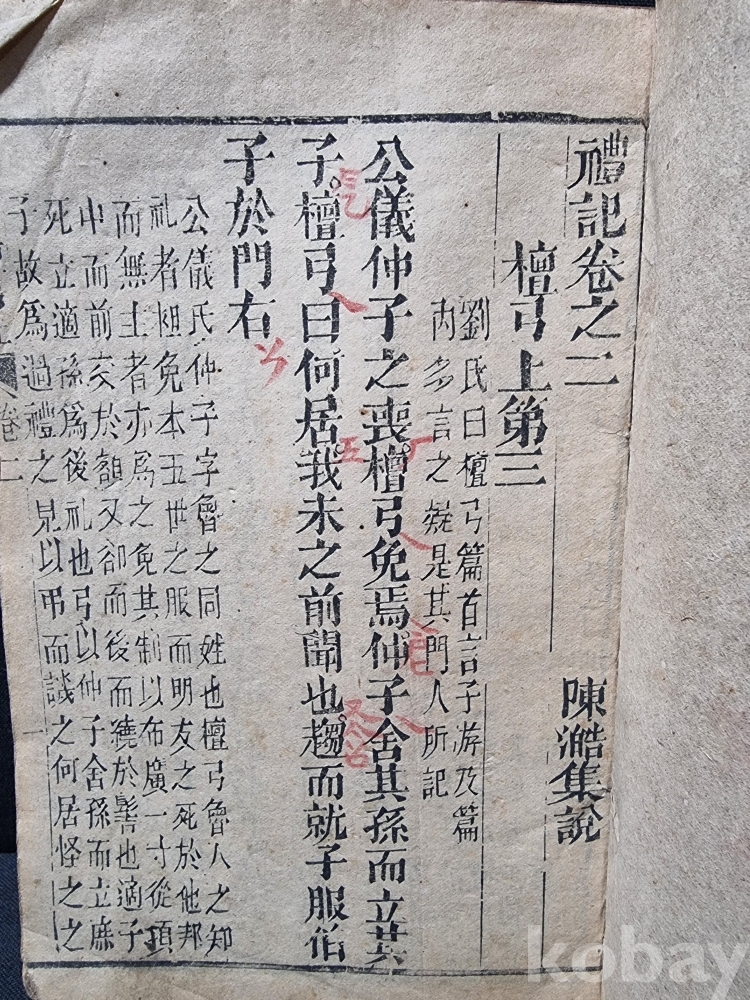 禮記卷之二
陳澔集說
檀弓上第三
劉氏曰檀弓篇首言子游及篇
內多言之疑是其門人所記
公儀仲子之喪檀弓免焉仲子舍其孫而立其
子檀弓曰何居我未之前聞也趨而就子服伯
子於門右
公儀氏仲子字魯之同姓也檀弓魯人之知
礼者袒免本五世之服而朋友之死於他邦
而無主者亦爲之免其制以布廣一寸從項
中而前交於額又卻而後而繞於髻也適子
死立適孫爲後礼也弓以仲子舍孫而立庶
子故爲過禮之免以弔而譏之何居怪之之
kobay